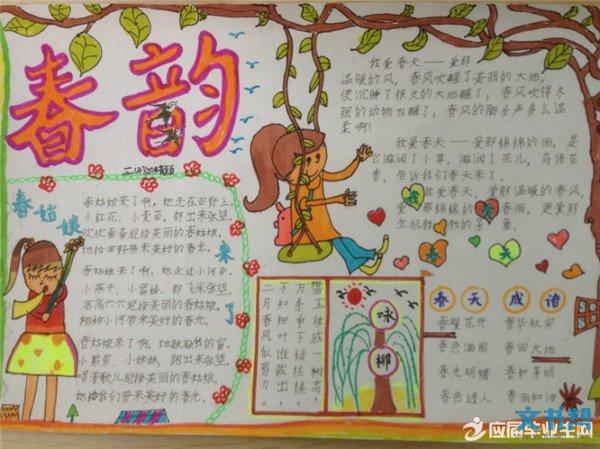 春韵
春姑娘来了
春姑娘来了啊，她走在田野上。
小红花、小麦苗，都出来张望。
欢欢喜喜迎接美丽的春姑娘，
她给田野带来美好的春光。
春姑娘来了啊，她走过小河旁。
小燕子、小蜜蜂，都飞来张望。
高高兴兴迎接美丽的春姑娘。
她给小河带来美好的春光。
春姑娘来了啊，她
小弟弟、小妹妹，跑出来张望。
唱着歌儿迎接美丽的春姑娘，
她给我们带来美好的春光。
我爱春天——爱那
温暖的风，春风吹醒了美丽的大地，
使沉睡了很久的大地醒了；春风吹得冬
眠的动物也醒了；春风的脚步声多么温
柔啊！
我爱春天——爱那绵绵的雨，是
它滋润了小草，滋润了花儿，鸟语花
香，告诉我们春天来了。
我爱春天，爱那温暖的春风，
爱那绵绵的春雨，更爱那
生机勃勃的景象。
碧玉妆成一树高
万条垂下绿丝绦
不知细叶谁裁出
二月春风似剪刀
咏柳
春天成语
春暖花开 春华秋实
春色满园 春回大地
春光明媚 春和景明
春色迷人 春雨如油
应届毕业生网